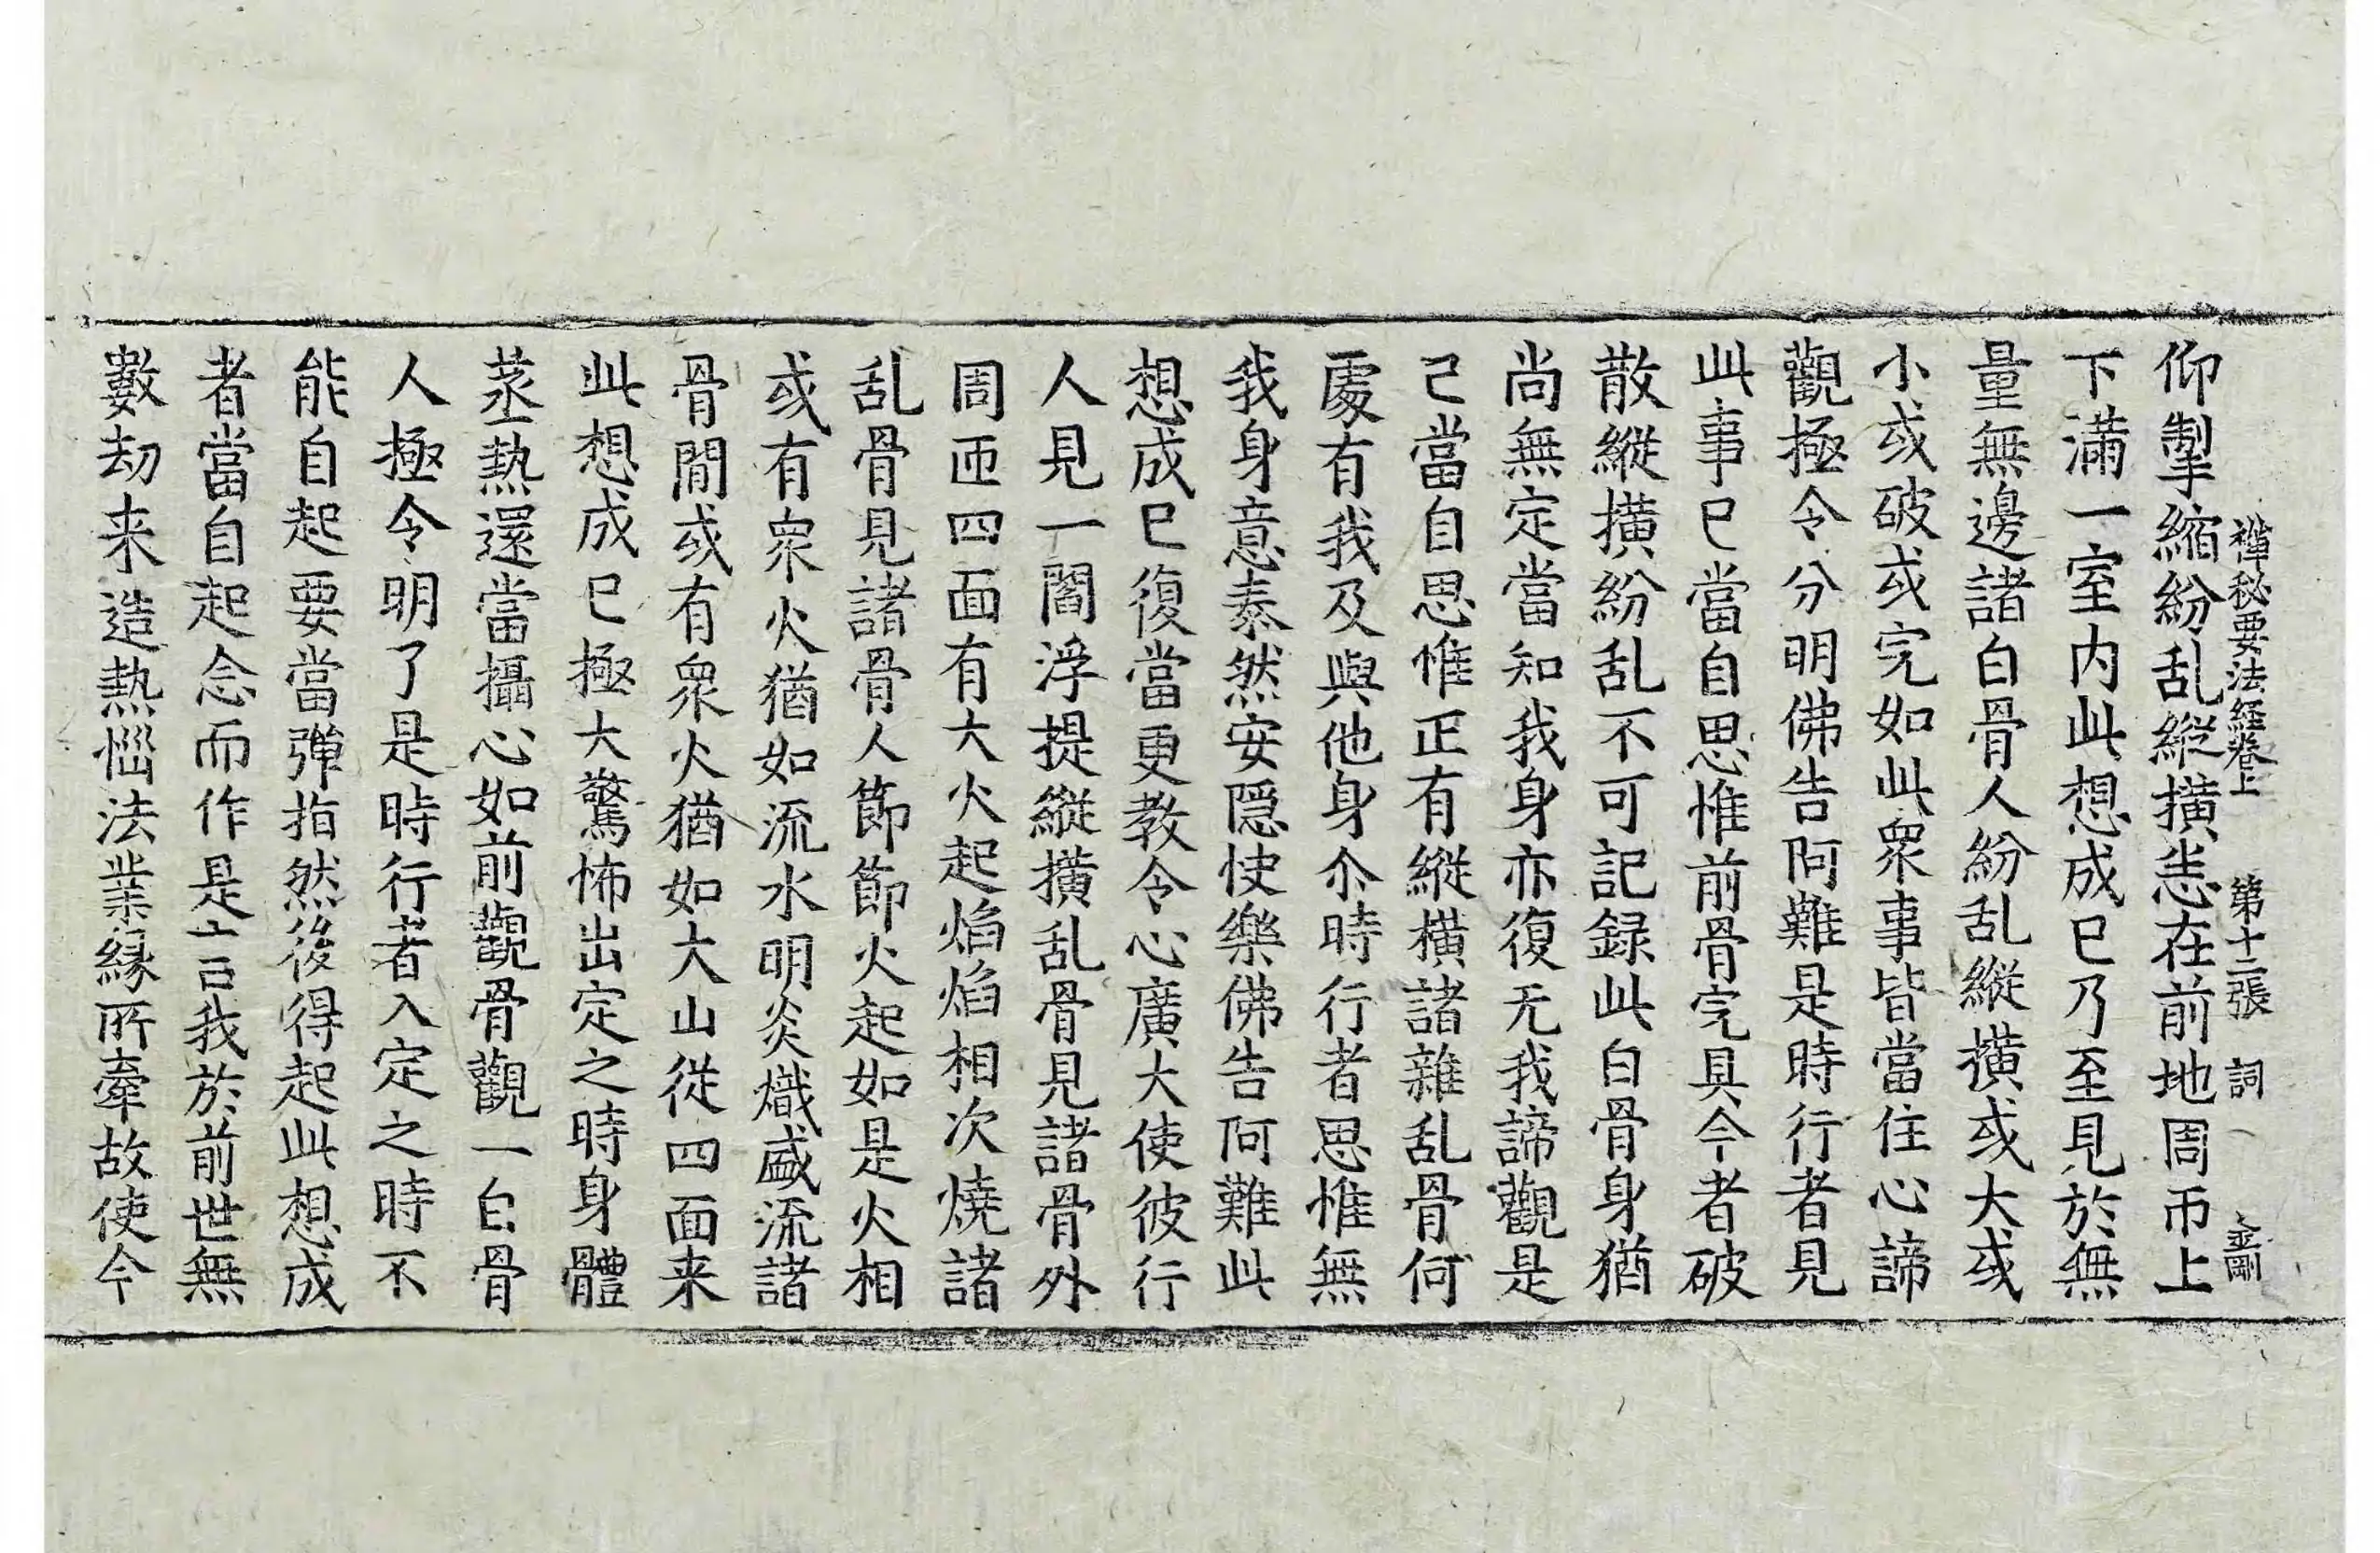 禪秘要法經卷上 第十二張 詞 金剛
仰掣縮紛乱縱撗恙在前地周帀上
下滿一室内此想成已乃至見於無
量無邊諸白骨人紛乱縱撗或大或
小或破或完如此衆事皆當住心諦
觀極令分明佛告阿難是時行者見
此事已當自思惟前骨完具今者破
散縱撗紛乱不可記録此白骨身猶
尚無定當知我身亦復无我諦觀是
已當自思惟正有縱橫諸雜乱骨何
處有我及與他身尒時行者思惟無
我身意泰然安隱快樂佛告阿難此
想成已復當更教令心廣大使彼行
人見一閻浮提縱撗乱骨見諸骨外
周迊四面有大火起焰焰相次燒諸
乱骨見諸骨人節節火起如是火相
或有衆火猶如流水明炎熾盛流諸
骨間或有衆火猶如大山從四面来
此想成已極大驚怖出定之時身體
蒸熱還當攝心如前觀骨觀一白骨
人極令明了是時行者入定之時不
能自起要當彈指然後得起此想成
者當自起念而作是言我於前世無
數劫来造熱惱法業緣所牽故使今